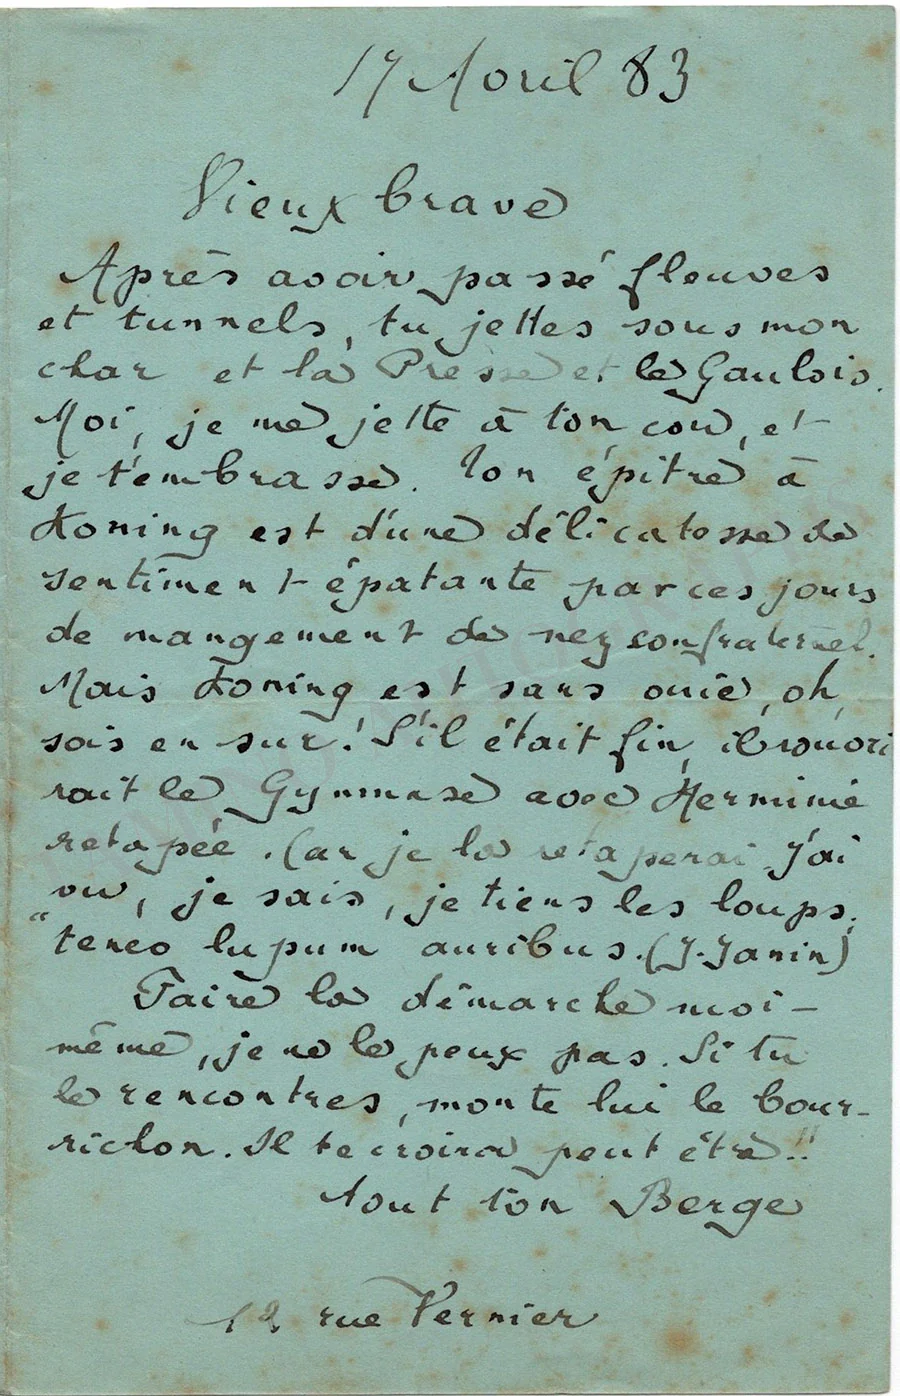 17 Avril 83
Vieux brave
Après avoir passé fleuves
et tunnels, tu jettes sous mon
char et la Presse et le Gaulois.
Moi, je me jette à ton cou, et
je t'embrasse. Ton épitre à
Koning est d'une délicatesse de
sentiment épatante par ces jours
de mangement de nez confraternel.
Mais Koning est sans ouïe, oh,
sois en sur! S'il était fin, il rouvri
rait le Gymnase avec Herminie
retapée. Car je la retaperai j'ai
vu, je sais, je tiens les loups.
"teneo lupum auribus. (J. Janin)
Faire la démarche moi-
même, je ne le peux pas. Si tu
le rencontres, monte lui le bour-
richon. Il te croira peut être!!
tout ton Berge
12, rue Vernier